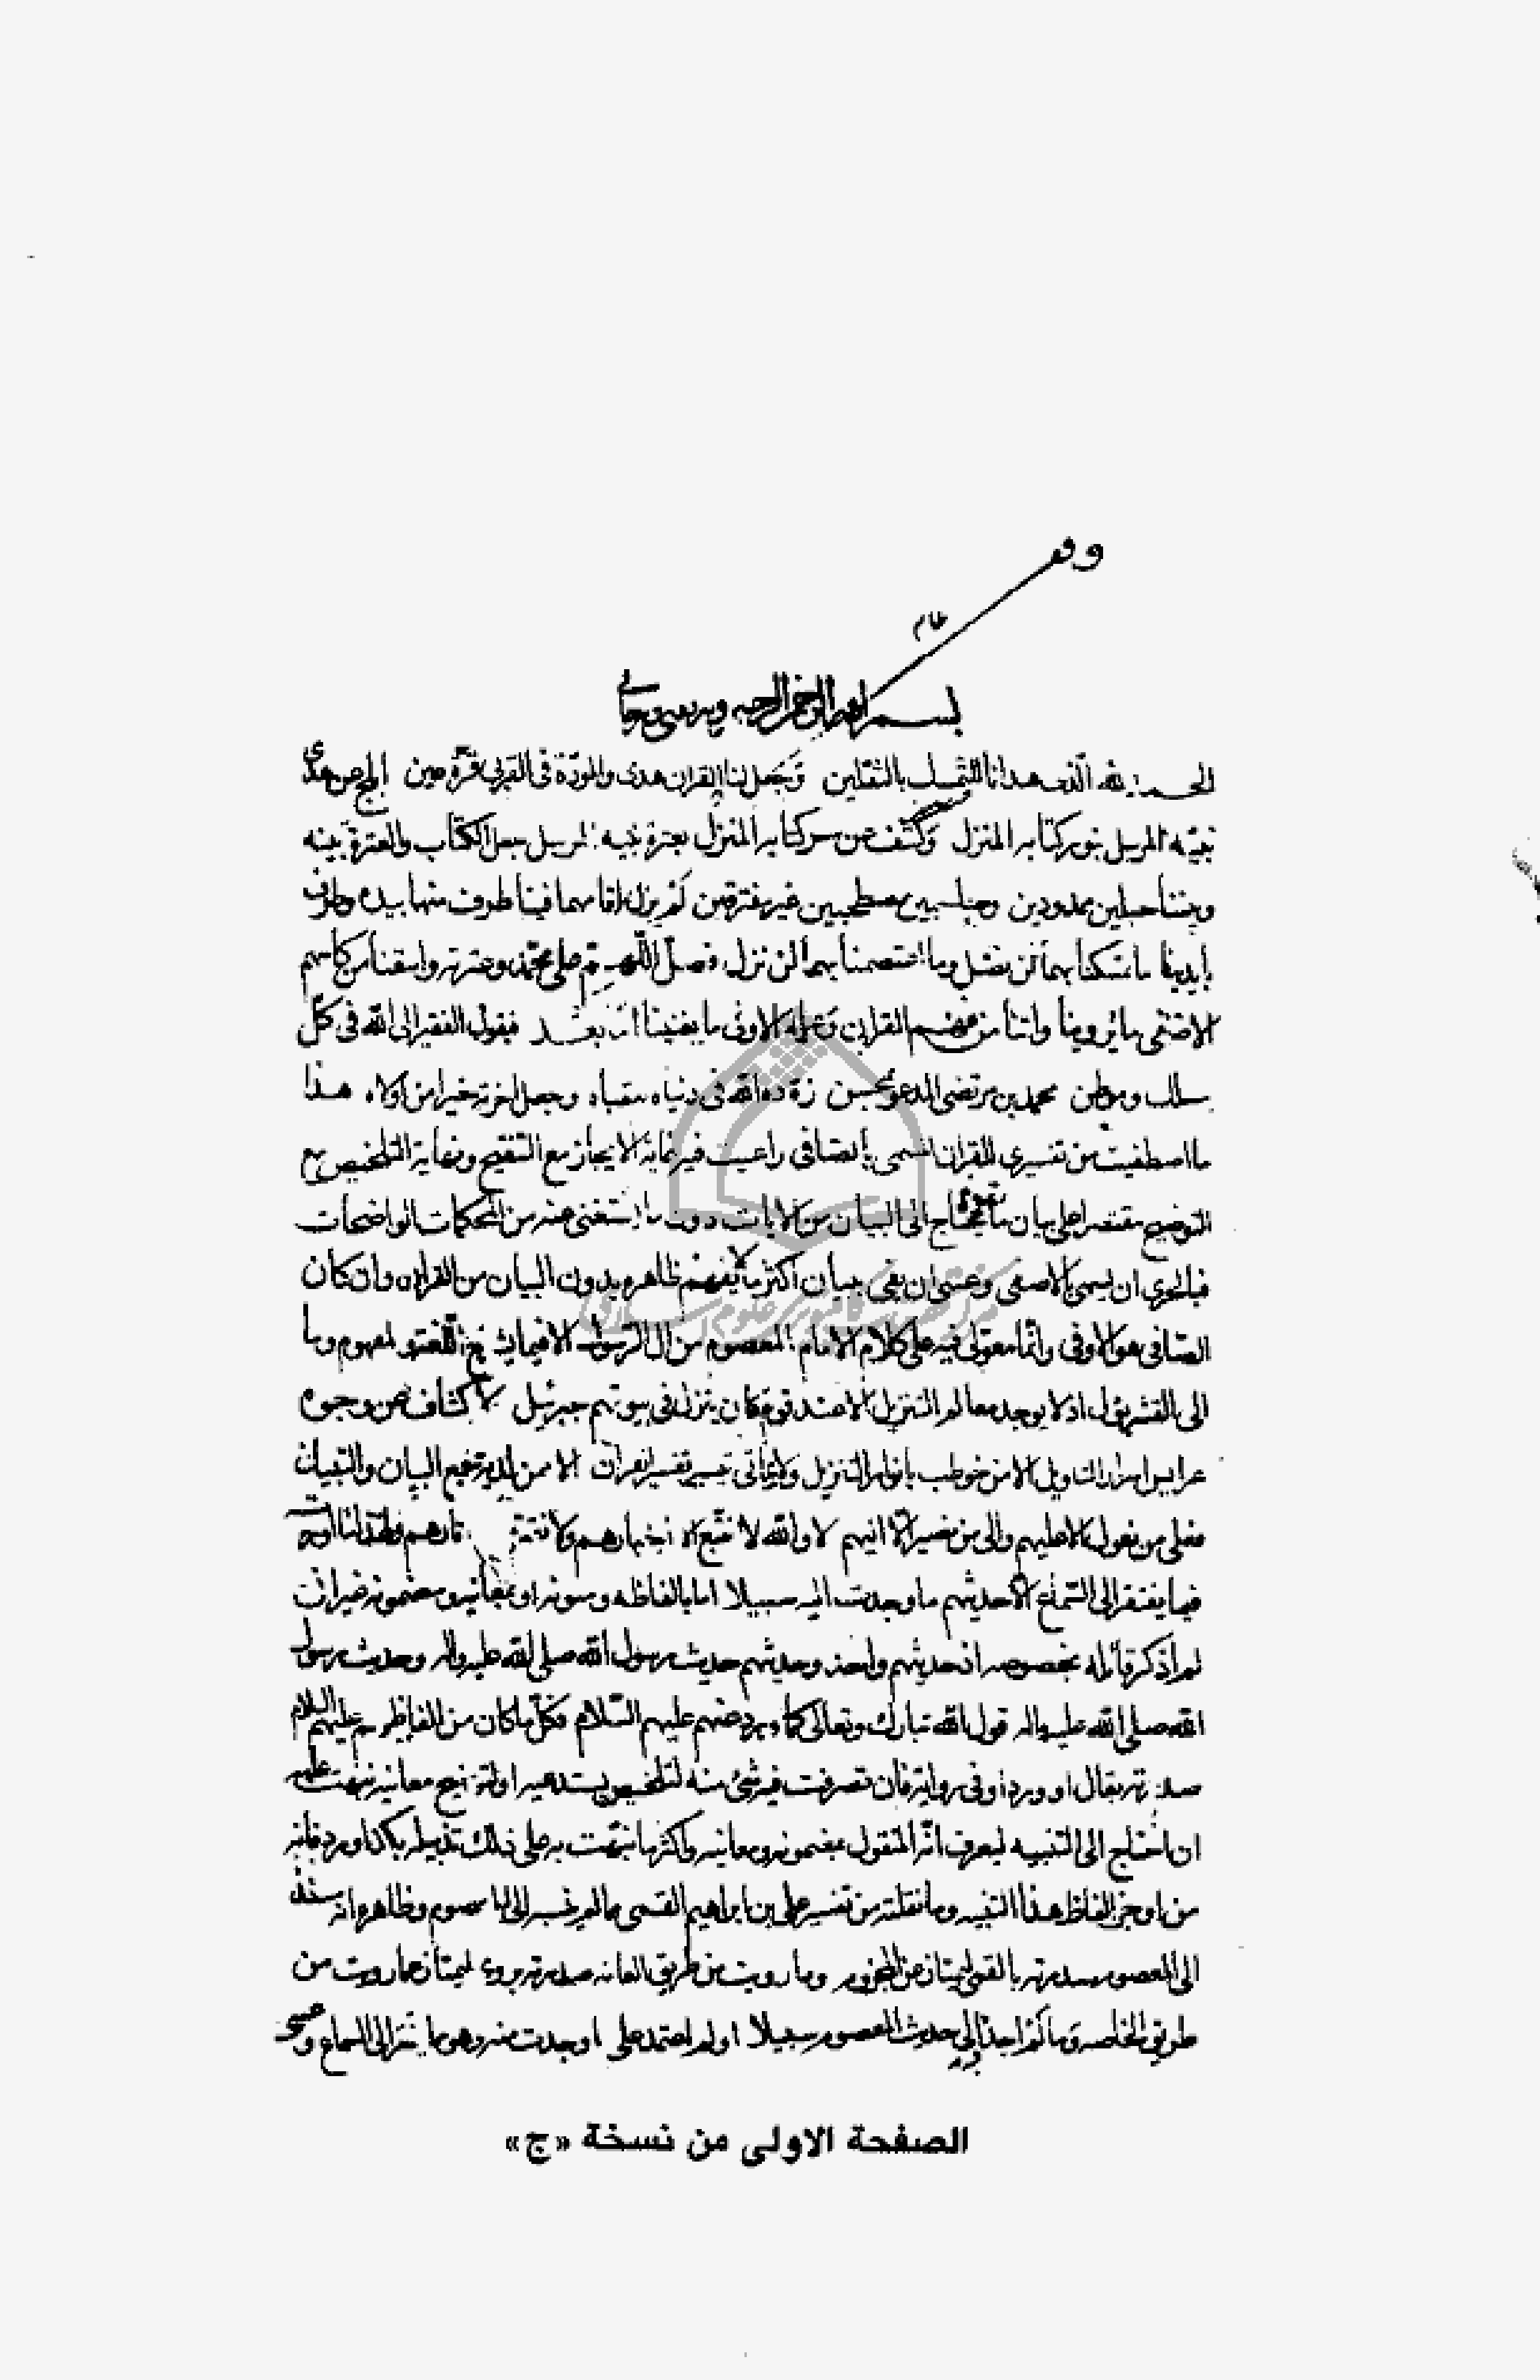 وقف
عام
بسم الله الرحمن الرحيم وبه
الحمد لله الذي هدانا للتمسك بالثقلين وجعل لنا القران هدى والمودة في القربى قرة عين عن هدى
نبيه المرسل بنور كتابه المنزل وكشف عن سر كتابه المنزل بعترة نبيه المرسل جعل الكتاب والعترة بينه
وبيننا حبلين ممدودين غير مفترقين لم يزل اقامهما فينا طرف منهما بيده وطرف
بأيدينا ما تمسكنا بهما لن نضل وما اعتصمنا بهما لن نزل فصل اللهم على محمد وعترته واسقنا من كاسهم
الاصفى ما يروينا واتنا من فهم القران وعلمه الاوفى ما يغنينا اما بعد فيقول الفقير الى الله في كل
مسلك وموطن محمد بن مرتضى المدعو بمحسن زوده الله في دنياه لعقباه وجعل اخرته خيرا من اولاه هذا
ما اصطفيت من تفسيري للقران المسمى بالصافي راعيت فيه غاية الايجاز مع التنقيح ونهاية التلخيص مع
التوضيح مقتصرا على بيان ما يحتاج الى البيان من الايات دون ما يستغنى عنه من المحكمات الواضحات
فبالحري ان يسمى بالاصفى وعسى ان يفي ببيان اكثر ما لا يفهم ظاهره بدون البيان من القران وان كان
الصافي هو الاوفى وانما معولي فيه على كلام الامام المعصوم من ال الرسول الا فيما يشرح اللغة والمفهوم وما
الى القشر يؤل اذ لا يوجد معالم التنزيل الا عند قوم كان ينزل في بيوتهم جبرئيل ولا كشاف عن وجوه
عرايس اسرار التاويل الا من خوطب بانوار التنزيل ولا يتاتى تيسير تفسير القرآن الا ممن لديه مجمع البيان والتبيان
فعلى من نعول الا عليهم والى من نصير الا اليهم لا والله لا نتبع الا اخبارهم ولا نقتفي الا اثارهم
فيما يفتقر الى السماع الا حديثهم ما وجدت اليه سبيلا اما بالفاظه ومتونه او بمعانيه ومضمونه غير اني
لم أذكر قائله بخصوصه اذ حديثهم واحد وحديثهم حديث رسول الله صلى الله عليه واله وحديث رسول
الله صلى الله عليه واله قول الله تبارك وتعالى كما ورد عنهم عليهم السلام فكل ما كان من الفاظهم عليهم السلام
صدرته بقال او ورد أو في رواية فان تصرفت في شئ منه لتلخيص يستدعيه او لتوضيح معانيه نبهت عليه
ان احتاج الى التنبيه ليعرف انه المنقول بمضمونه ومعانيه واكثر ما نبهت به على ذلك تذييله بكذا ورد فانه
من اوجز الفاظ هذا التنبيه وما نقلته من تفسير علي بن ابراهيم القمي مما لم ينسبه الى المعصوم وظاهره انه سنده
الى المعصوم صدرته بالقمي ليمتاز عن المجزوم وما رويت من طريق العامة صدرته بروي ليمتاز عما رويت من
طريق الخاصة وما لم اجد فيه الى حديث المعصوم سبيلا او لم اعتمد على ما وجدت منه وهو مما يفتقر الى السماع وعسى
الصفحة الاولى من نسخة «ج»